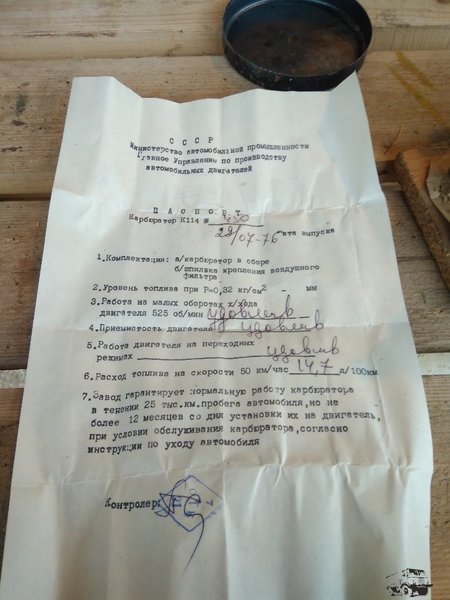 СССР
Министерство автомобильной промышленности
Главное Управление по производству
автомобильных двигателей
ПАСПОРТ
Карбюратор К114 №
29/07-76 дата выпуска
1.Комплектация: а/карбюратор в сборе
б/шпилька крепления воздушного
фильтра
2.Уровень топлива при Р=0,32 кг/см² - мм
3.Работа на малых оборотах х/хода
двигателя 525 об/мин удовлетв
4.Приемистость двигателя удовлтв
5.Работа двигателя на переходных
режимах удовлтв
6.Расход топлива на скорости 50 км/час 14,7 л/100км
7.Завод гарантирует нормальную работу карбюратора
в течении 25 тыс.км.пробега автомобиля,но не
более 12 месяцев со дня установки их на двигатель,
при условии обслуживания карбюратора,согласно
инструкции по уходу автомобиля
Контролер: